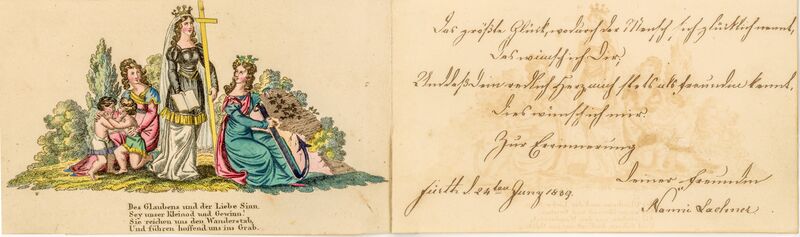 Des Glaubens und der Liebe Sinn.
Sey unser Kleinod und Gewinn!
Sie reichen uns den Wanderstab,
Und führen hoffend uns ins Grab.
Das größte Glück, wodurch der Mensch sich glücklich nennt,
Das wünsch ich Dir;
Und daß dein redlich Herz mich stets als Freundin kennt,
Dies wünsch ich mir.
Zur Erinnerung
Fürth d. 24ten Juny 1839.
Deiner Freundin
Nanni Lachner